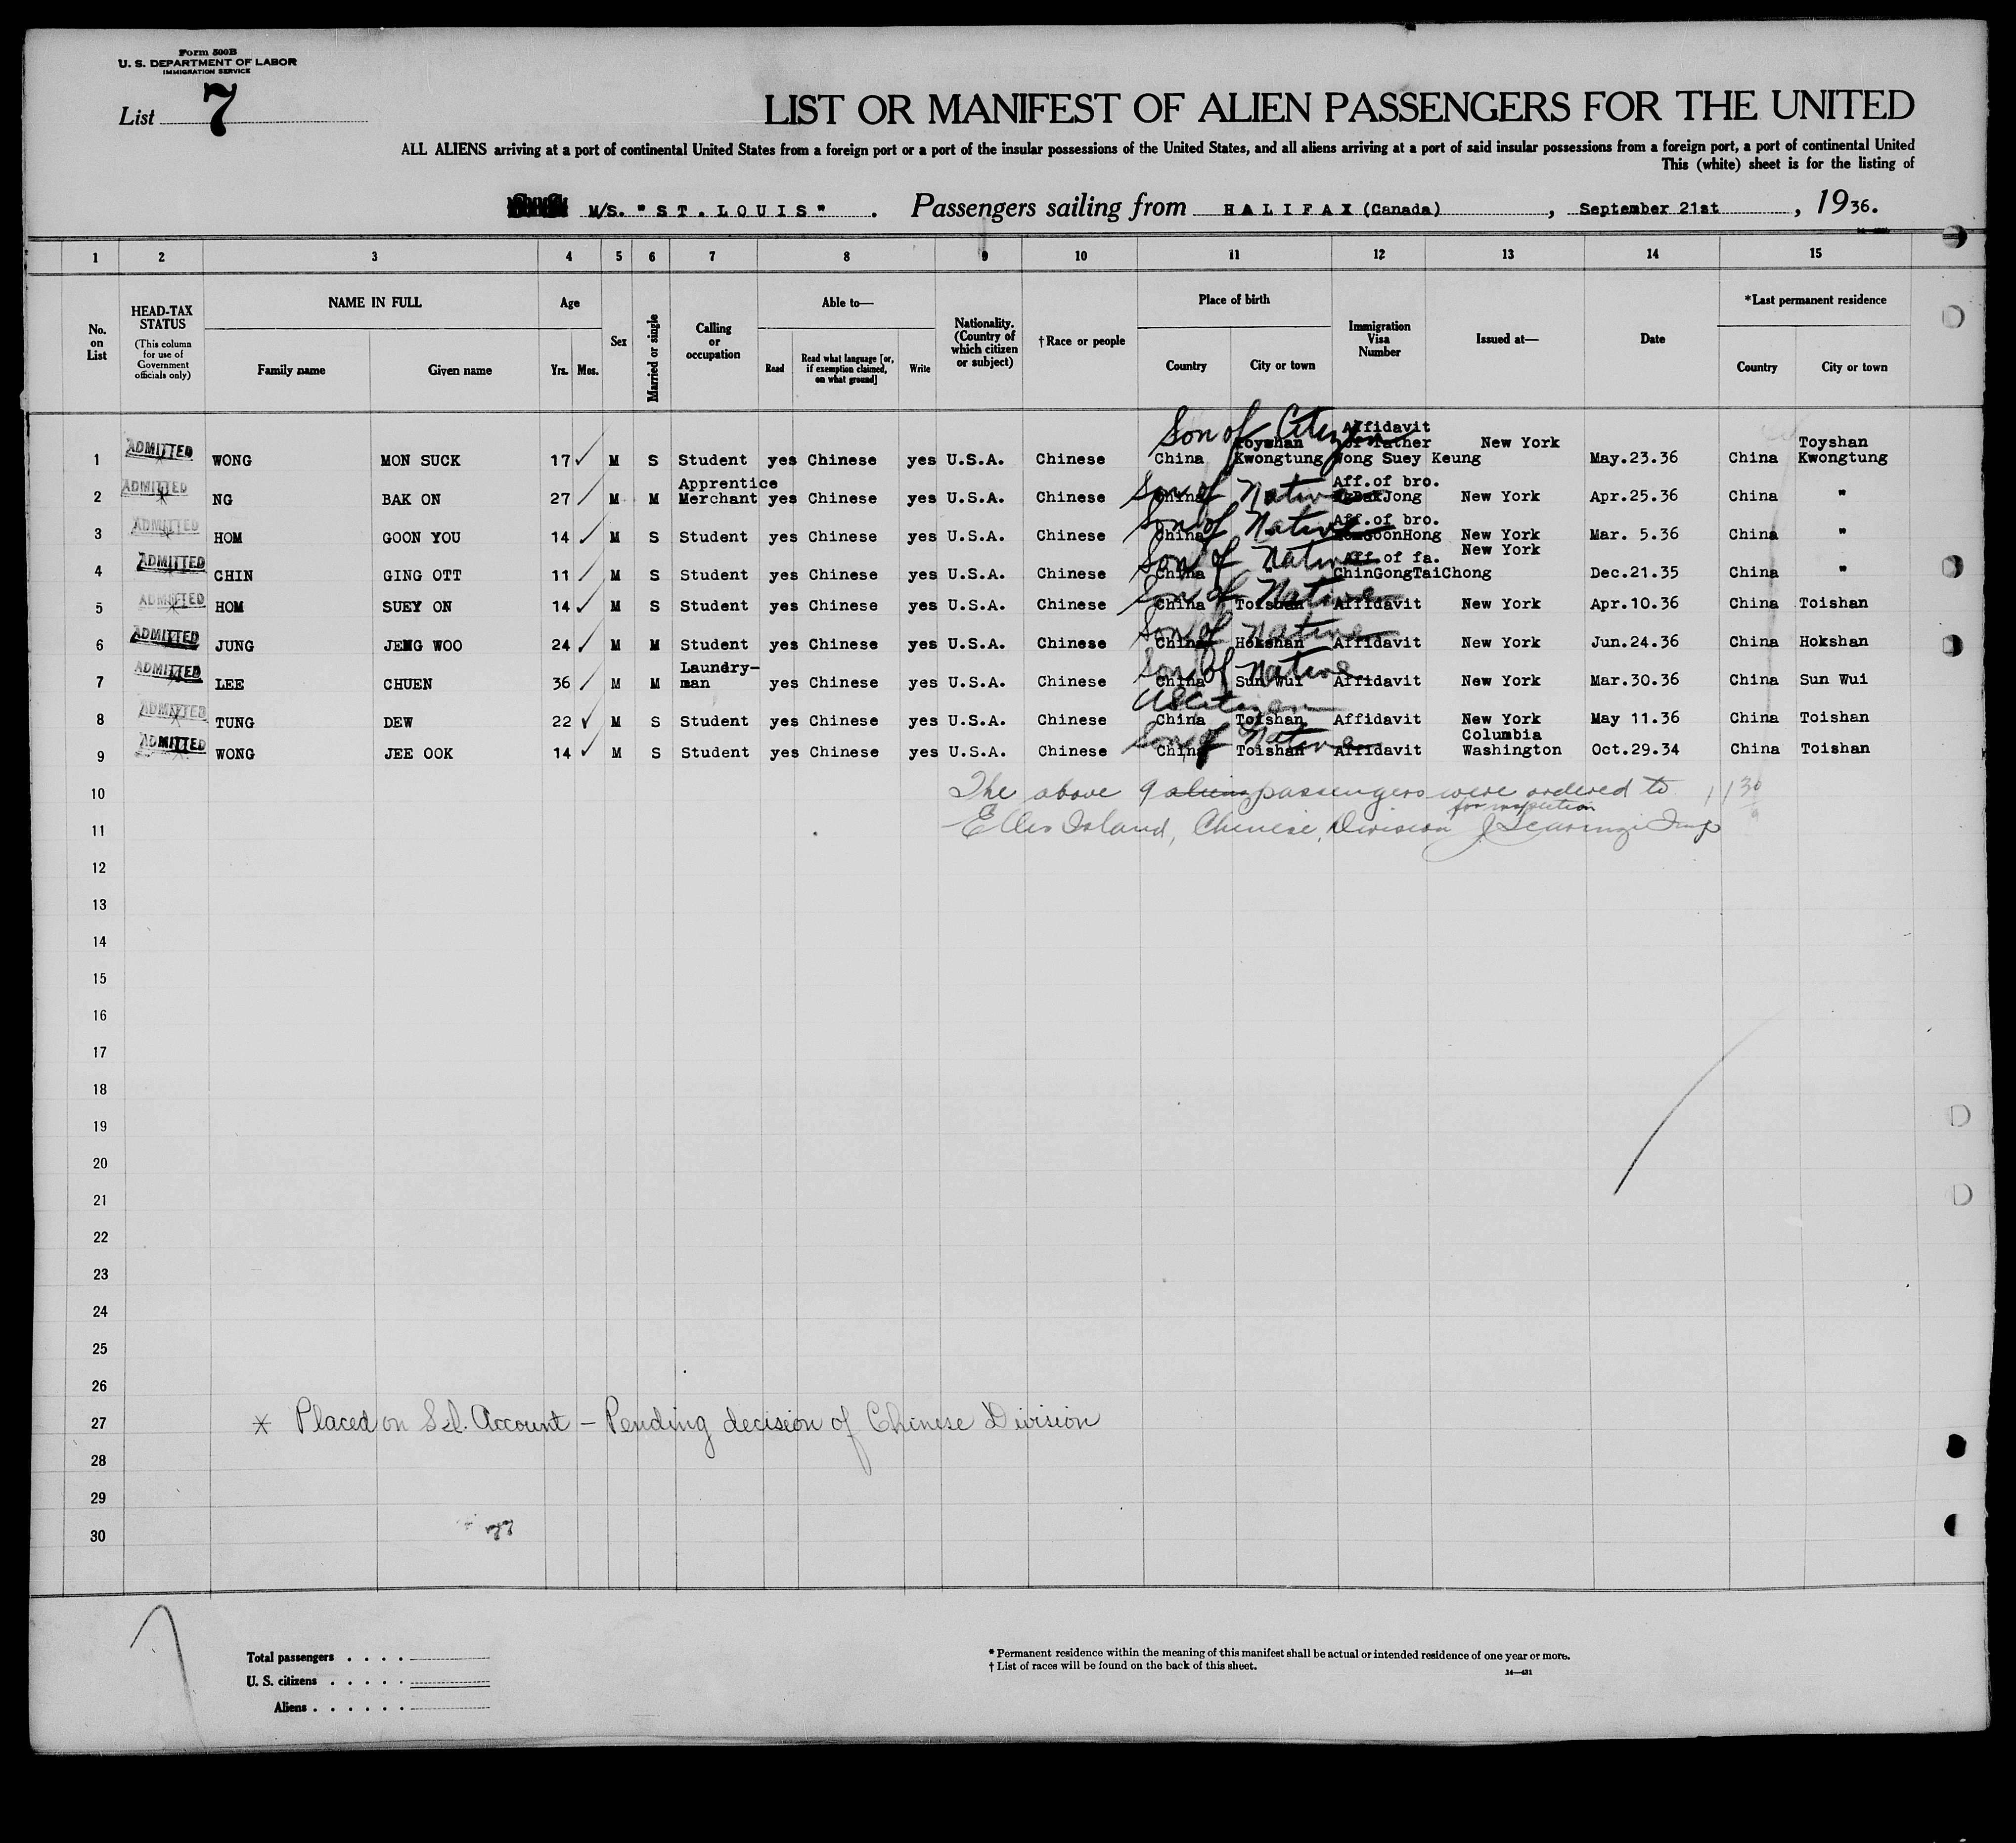 Form 500B
U. S. DEPARTMENT OF LABOR
IMMIGRATION SERVICE
List 7
LIST OR MANIFEST OF ALIEN PASSENGERS FOR THE UNITED
ALL ALIENS arriving at a port of continental United States from a foreign port or a port of the insular possessions of the United States, and all aliens arriving at a port of said insular possessions from a foreign port, a port of continental United
This (white) sheet is for the listing of
M/S. "ST. LOUIS". Passengers sailing from HALIFAX (Canada), September 21st, 1936.
1 2 3 4 5 6 7 8 9 10 11 12 13 14 15
No. on List
HEAD-TAX STATUS
(This column for use of Government officials only)
NAME IN FULL
Family name Given name
Age
Yrs. Mos.
Sex
Married or single
Calling or occupation
Able to—
Read
Read what language [or, if exemption claimed, on what ground]
Write
Nationality. (Country of which citizen or subject)
†Race or people
Place of birth
Country City or town
Immigration Visa Number
Issued at—
Date
*Last permanent residence
Country City or town
Son of Citizen Affidavit
Toyshan of father New York Toyshan
1 ADMITTED WONG MON SUCK 17 ✓ M S Student yes Chinese yes U.S.A. Chinese China Kwongtung Wong Suey Keung May.23.36 China Kwongtung
Apprentice Aff.of bro.
2 ADMITTED NG BAK ON 27 ✓ M M Merchant yes Chinese yes U.S.A. Chinese China Son of Native Jong New York Apr.25.36 China "
Aff.of bro.
3 ADMITTED HOM GOON YOU 14 ✓ M S Student yes Chinese yes U.S.A. Chinese China Son of Native HomGoonHong New York Mar. 5.36 China "
Aff.of fa. New York
4 ADMITTED CHIN GING OTT 11 ✓ M S Student yes Chinese yes U.S.A. Chinese China Son of Native " ChinGongTaiChong Dec.21.35 China "
5 ADMITTED HOM SUEY ON 14 ✓ M S Student yes Chinese yes U.S.A. Chinese Son of Native China Toishan Affidavit New York Apr.10.36 China Toishan
6 ADMITTED JUNG JEMG WOO 24 ✓ M M Student yes Chinese yes U.S.A. Chinese Son of Native China Hokshan Affidavit New York Jun.24.36 China Hokshan
Laundry-
7 ADMITTED LEE CHUEN 36 ✓ M M man yes Chinese yes U.S.A. Chinese Son of Native China Sun Wui Affidavit New York Mar.30.36 China Sun Wui
8 ADMITTED TUNG DEW 22 ✓ M S Student yes Chinese yes U.S.A. Chinese US Citizen China Toishan Affidavit New York May 11.36 China Toishan
Columbia
9 ADMITTED WONG JEE OOK 14 ✓ M S Student yes Chinese yes U.S.A. Chinese Son of Native China Toishan Affidavit Washington Oct.29.34 China Toishan
10 The above 9 aliens passengers were ordered to
for inspection
11 Ellis Island, Chinese Division
12
13
14
15
16
17
18
19
20
21
22
23
24
25
26
27 * Placed on Account – Pending decision of Chinese Division
28
29
30
Total passengers . . . .
U. S. citizens . . . . .
Aliens . . . . . .
* Permanent residence within the meaning of this manifest shall be actual or intended residence of one year or more.
† List of races will be found on the back of this sheet.
14—431